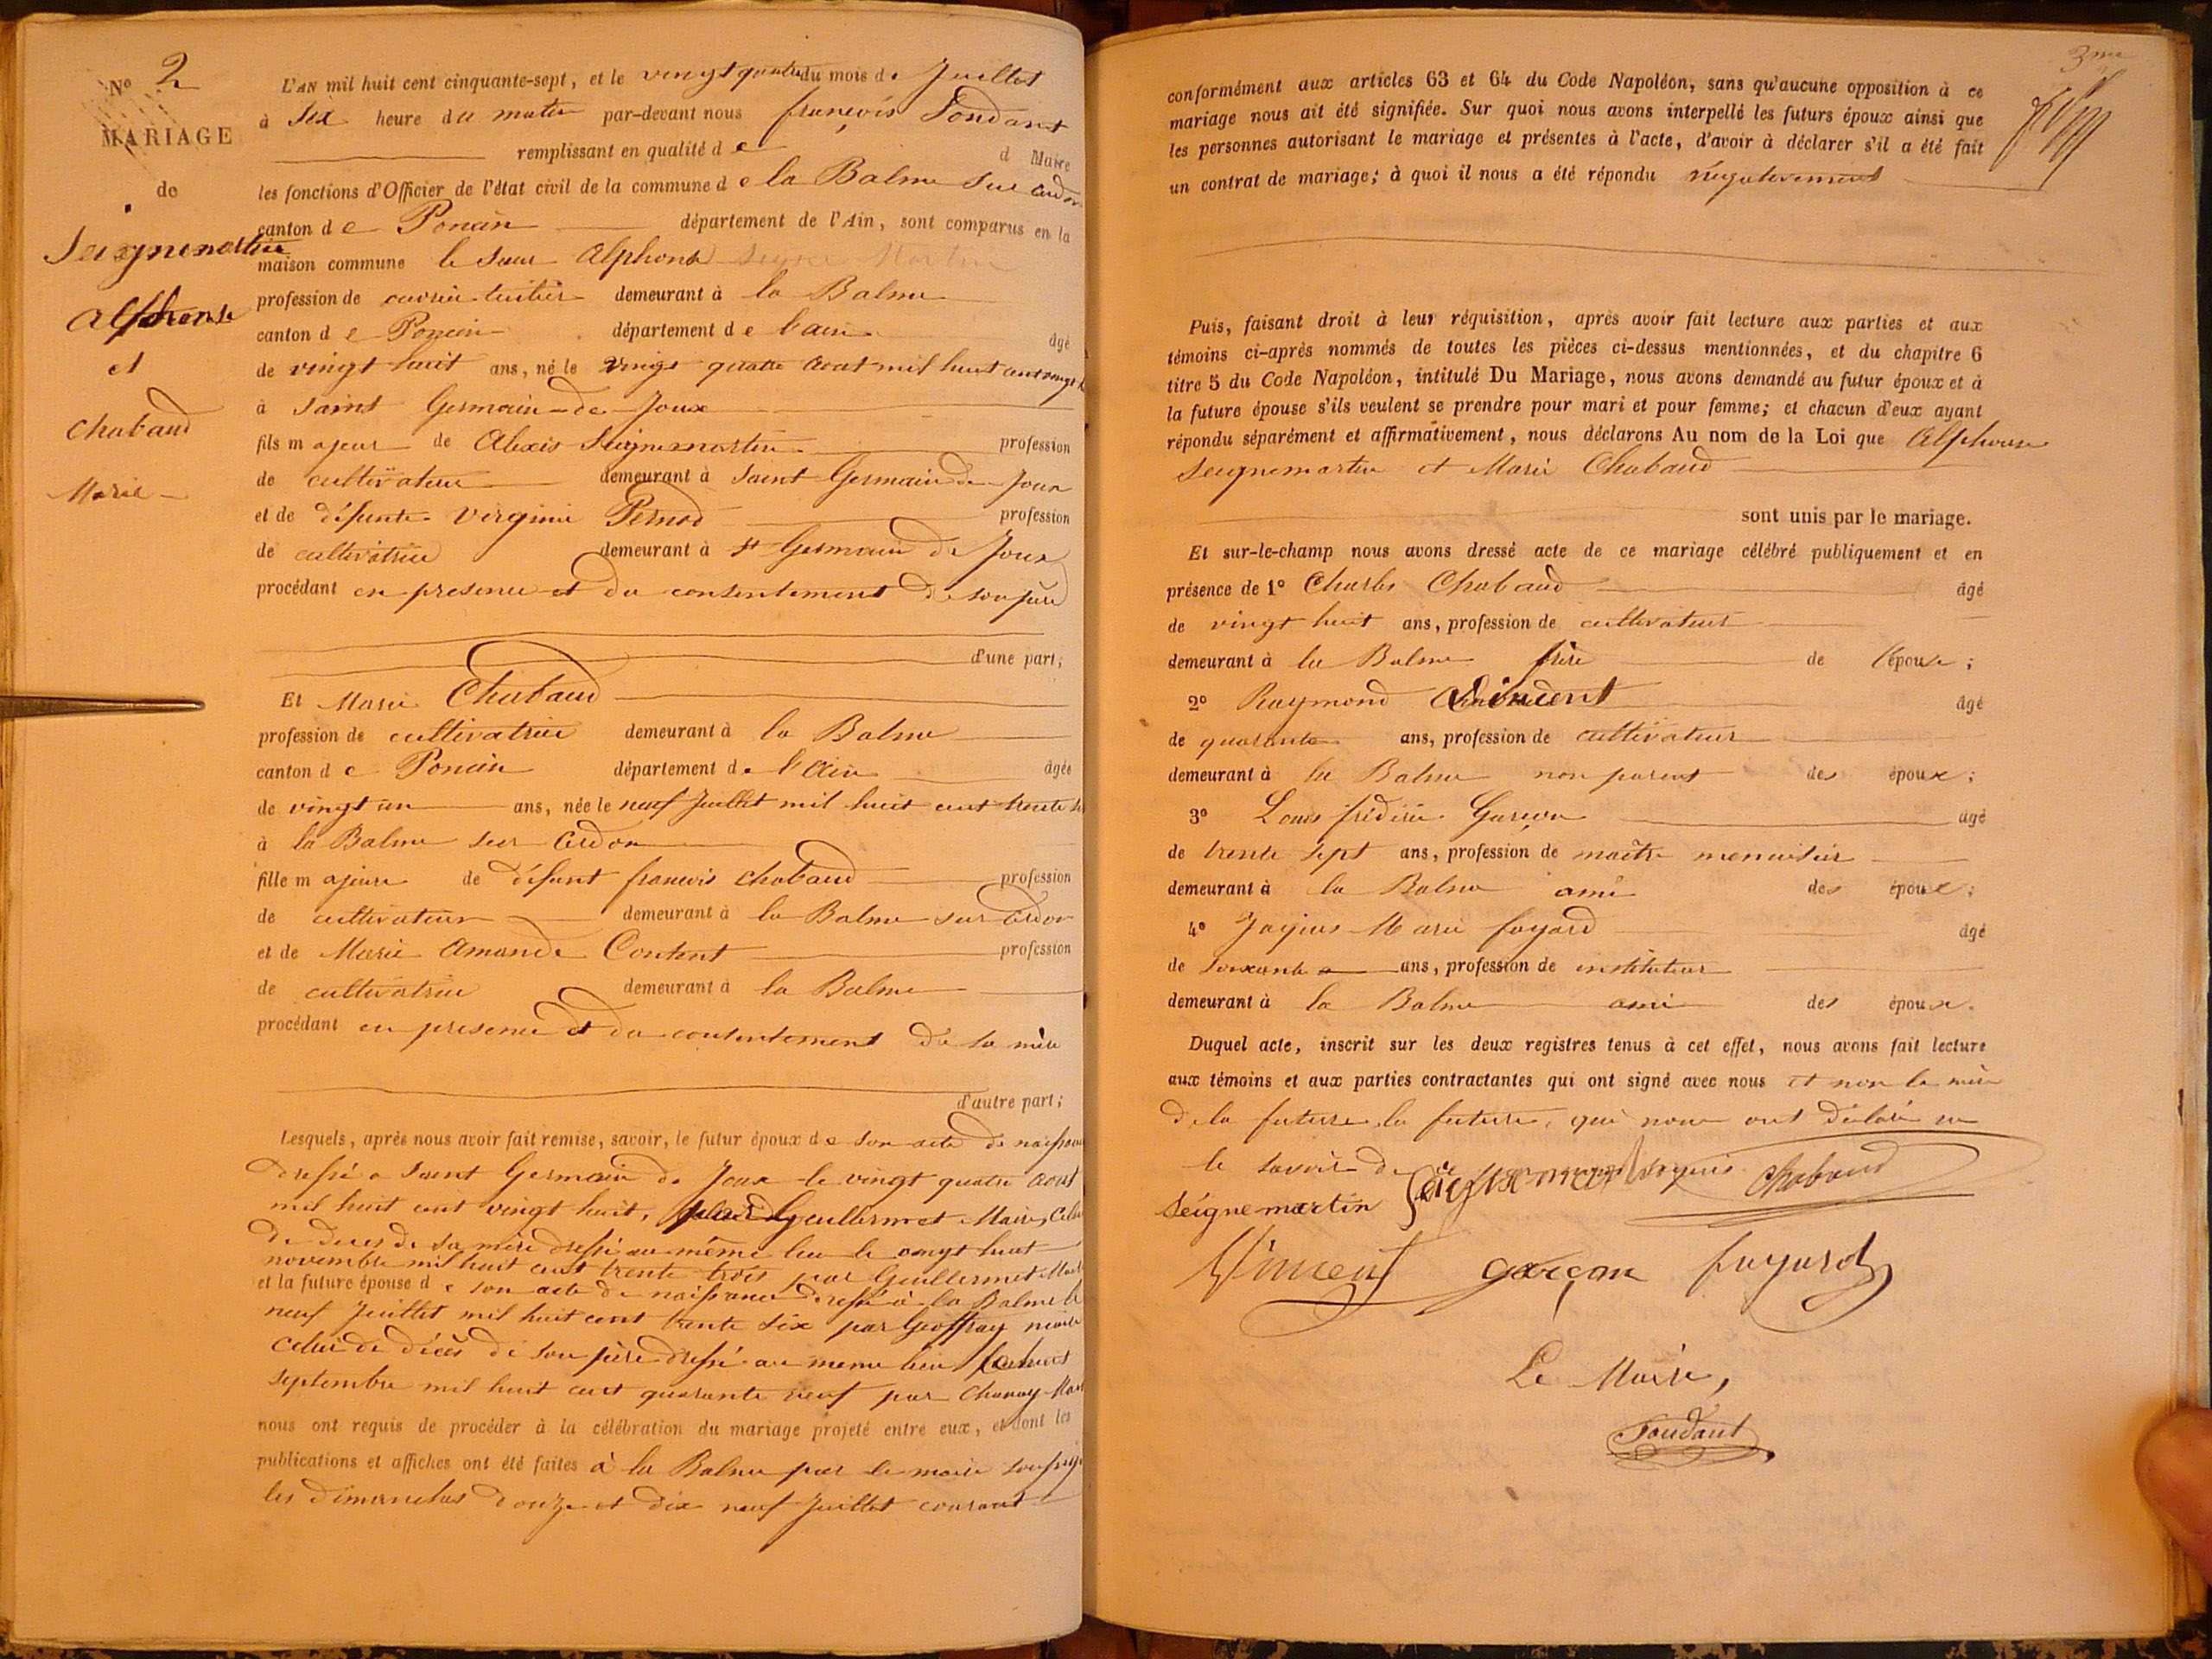 N° 2
MARIAGE
de
Seignemartin
Alphonse
et
Chabaud
Marie
L'AN mil huit cent cinquante-sept, et le vingt quatre du mois de Juillet
à six heure du matin par-devant nous françois Fondant
remplissant en qualité de d Maire
les fonctions d'Officier de l'état civil de la commune de la Balme sur Cerdon
canton de Poncin département de l'Ain, sont comparus en la
maison commune le sieur Alphonse Seigne Martin
profession de ouvrier tuilier demeurant à la Balme
canton de Poncin département de l'ain âgé
de vingt huit ans, né le vingt quatre aout mil huit cent vingt h
à Saint Germain-de-Joux
fils majeur de Alexis Seignemartin profession
de cultivateur demeurant à Saint Germain de Joux
et de défunte Virginie Pernod profession
de cultivatrice demeurant à St Germain de Joux
procédant en presence et du consentement de son père
d'une part;
Et Marie Chabaud
profession de cultivatrice demeurant à la Balme
canton de Poncin département de l'Ain âgée
de vingt un ans, née le neuf Juillet mil huit cent trente si
à la Balme sur Cerdon
fille majeure de défunt francois Chabaud profession
de cultivateur demeurant à la Balme sur Cerdon
et de Marie Amande Content profession
de cultivatrice demeurant à la Balme
procédant en presence et du consentement de sa mère
d'autre part;
Lesquels, après nous avoir fait remise, savoir, le futur époux de son acte de naissance
dressé a Saint Germain de Joux le vingt quatre aout
mil huit cent vingt huit, par Guillermet Maire, Celui
de deces de sa mère dressé au même lieu le vingt huit
novembre mil huit cent trente trois par Guillermet Maire
et la future épouse de son acte de naissance dressé à la Balme le
neuf Juillet mil huit cent trente six par Geoffray maire
celui de décès de son père dressé au meme lieu le huit
septembre mil huit cent quarante neuf par Chanay Maire
nous ont requis de procéder à la célébration du mariage projeté entre eux, et dont les
publications et affiches ont été faites à la Balme par le maire soussigné
les dimanches douze et dix neuf Juillet courant
3me
conformément aux articles 63 et 64 du Code Napoléon, sans qu'aucune opposition à ce
mariage nous ait été signifiée. Sur quoi nous avons interpellé les futurs époux ainsi que
les personnes autorisant le mariage et présentes à l'acte, d'avoir à déclarer s'il a été fait
un contrat de mariage; à quoi il nous a été répondu négativement
Puis, faisant droit à leur réquisition, après avoir fait lecture aux parties et aux
témoins ci-après nommés de toutes les pièces ci-dessus mentionnées, et du chapitre 6
titre 5 du Code Napoléon, intitulé Du Mariage, nous avons demandé au futur époux et à
la future épouse s'ils veulent se prendre pour mari et pour femme; et chacun d'eux ayant
répondu séparément et affirmativement, nous déclarons Au nom de la Loi que Alphonse
Seignemartin et Marie Chabaud
sont unis par le mariage.
Et sur-le-champ nous avons dressé acte de ce mariage célébré publiquement et en
présence de 1° Charles Chabaud âgé
de vingt huit ans, profession de cultivateur
demeurant à la Balme frère de l'épouse;
2° Raymond Vincent âgé
de quarante ans, profession de cultivateur
demeurant à la Balme non parent des époux;
3° Louis frédéric Garçon âgé
de trente sept ans, profession de maître menuisier
demeurant à la Balme ami des époux;
4° Marie fayard âgé
de soixante ans, profession de instituteur
demeurant à la Balme ami des époux.
Duquel acte, inscrit sur les deux registres tenus à cet effet, nous avons fait lecture
aux témoins et aux parties contractantes qui ont signé avec nous et non la mère
de la future la future, qui nous ont déclaré ne
le savoir de ce requis
Seignemartin Seignemartin Chabaud
Vincent garçon fayard
Le Maire,
Fondant